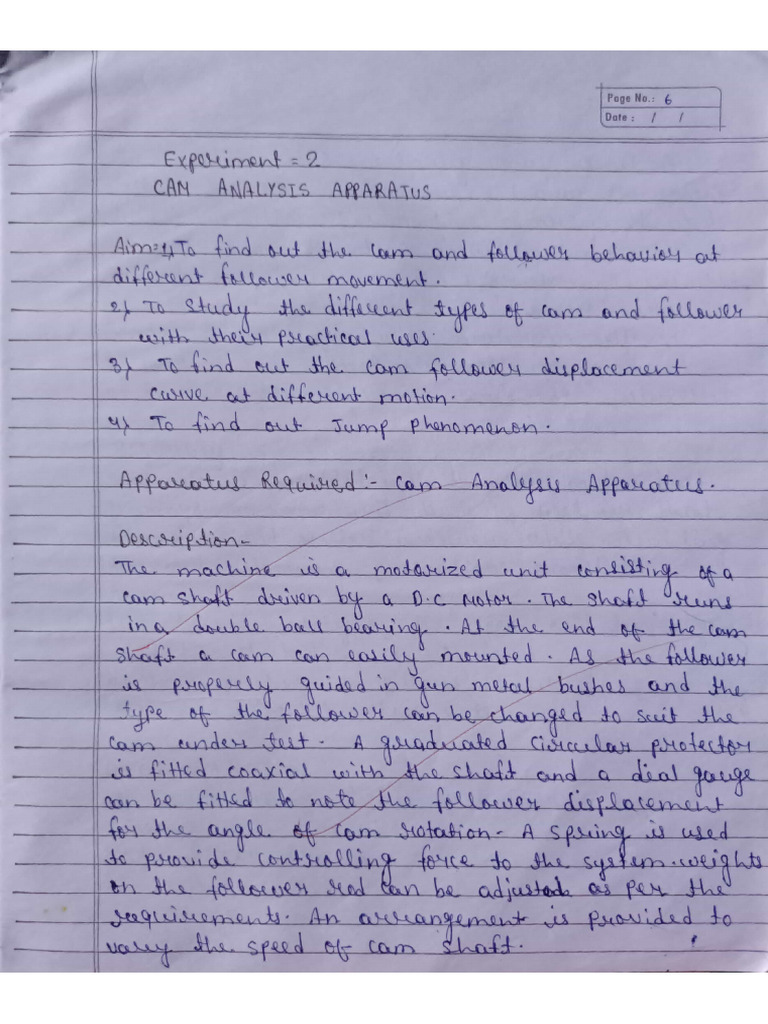 Page No.: 6
Date : / /
Experiment = 2
CAM ANALYSIS APPARATUS
Aim=1) To find out the cam and follower behavior at
different follower movement.
2) To study the different types of cam and follower
with their practical uses.
3) To find out the cam follower displacement
curve at different motion.
4) To find out Jump phenomenon.
Apparatus Required :- Cam Analysis Apparatus.
Description-
The machine is a motorized unit consisting of a
cam shaft driven by a D.C Motor. The shaft runs
in a double ball bearing. At the end of the cam
shaft a cam can easily mounted. As the follower
is properly guided in gun metal bushes and the
type of the follower can be changed to suit the
cam under test. A graduated circular protector
is fitted coaxial with the shaft and a dial gauge
can be fitted to note the follower displacement
for the angle of cam rotation- A spring is used
to provide controlling force to the system. weights
on the follower rod can be adjusted as per the
requirements. An arrangement is provided to
vary the speed of cam shaft.